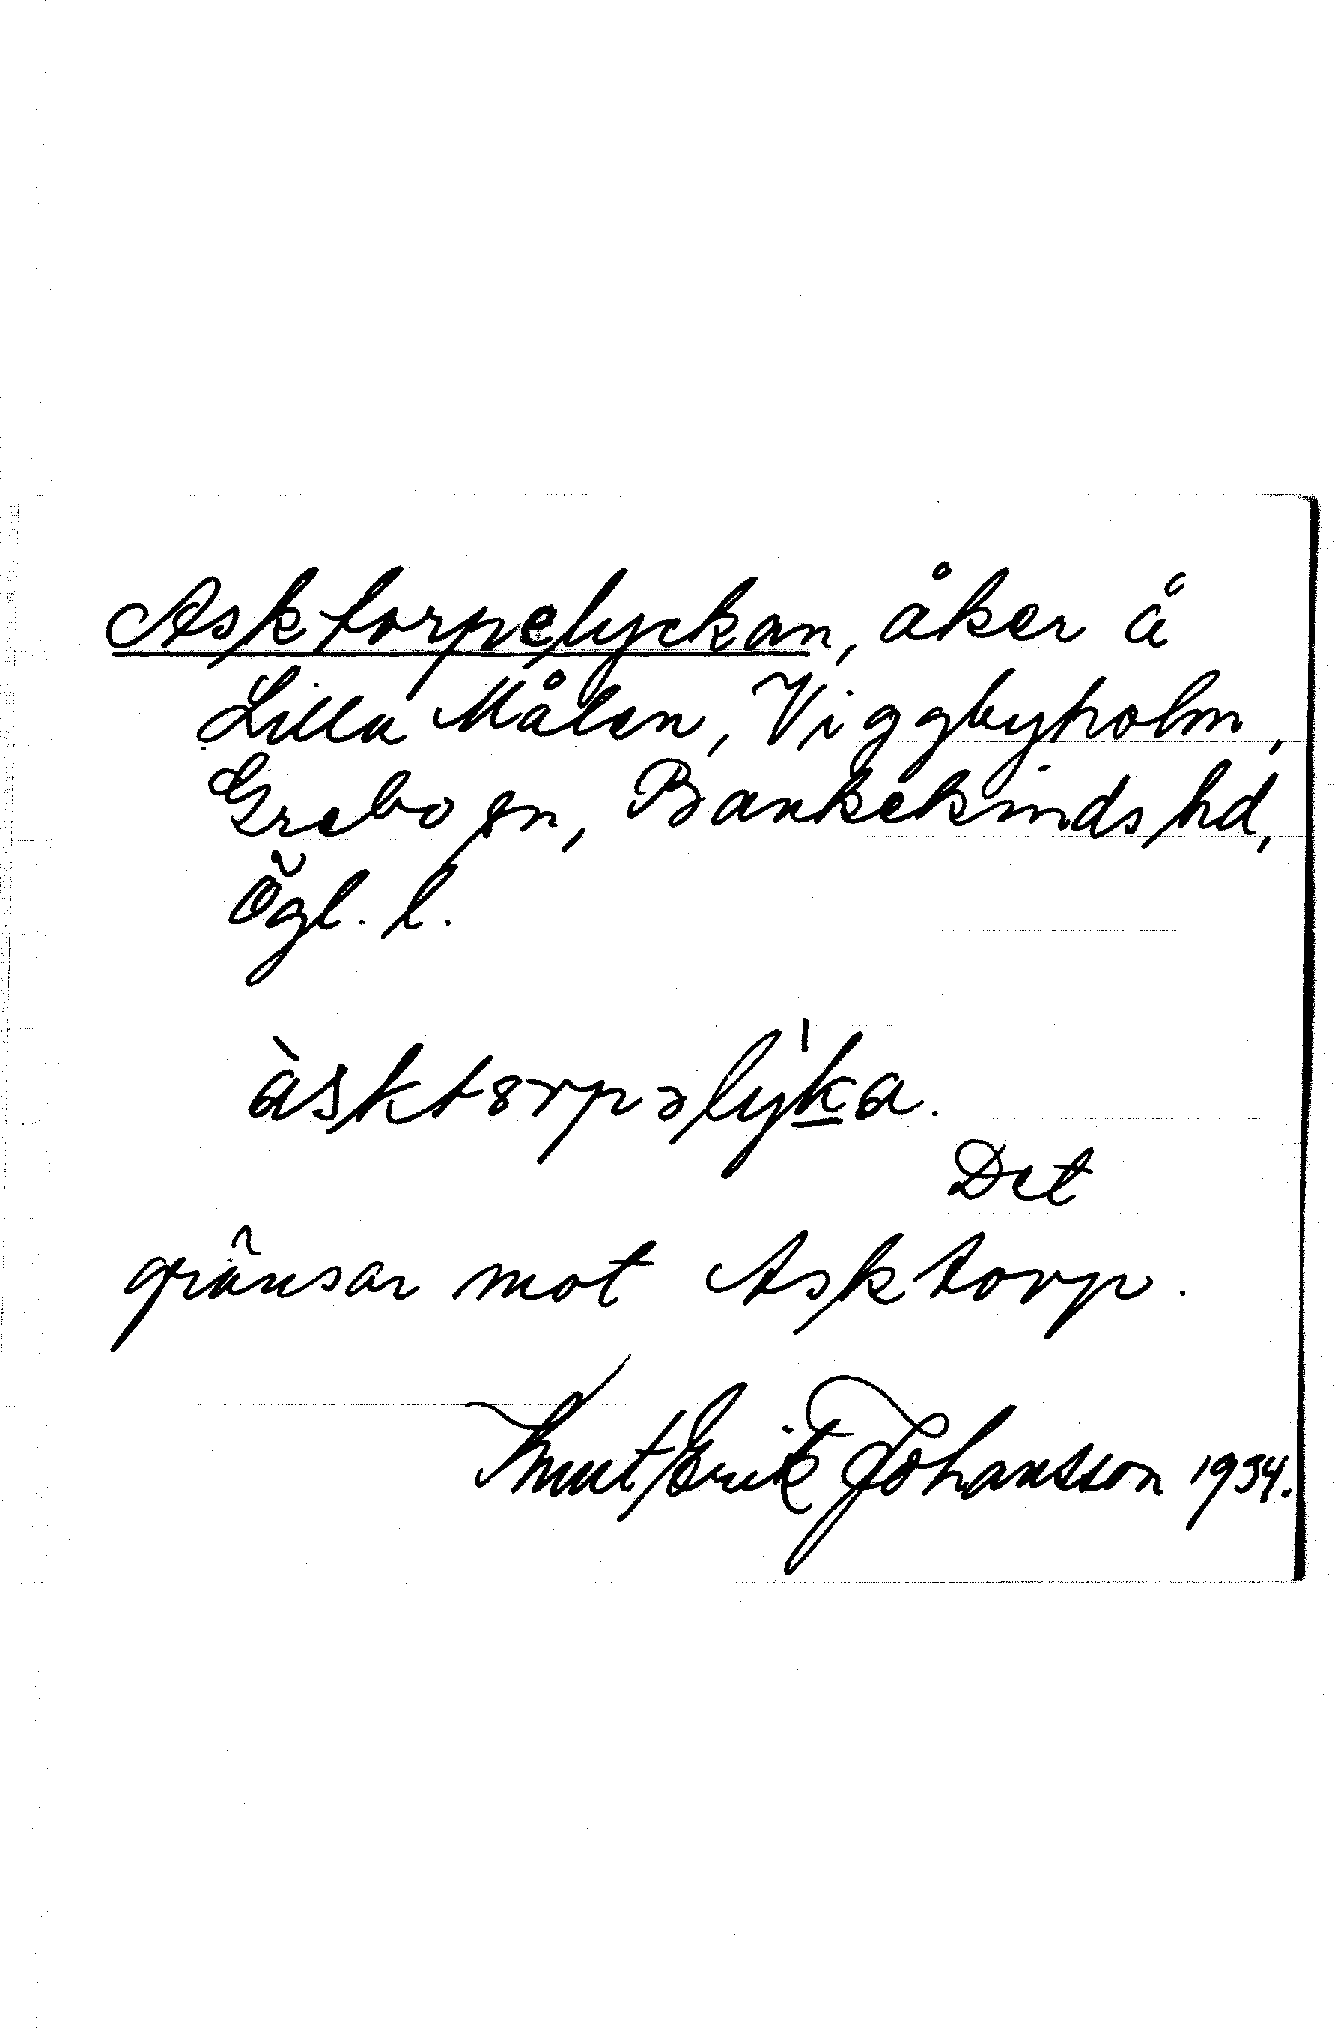 Asktorpelyckan, åker å
Lilla Målen, Viggbyholm,
Grebo sn, Bankekinds hd,
Ögl. l.
àsktɜrpəlýka.
Det
gränsar mot Asktorp.
Knut Erik Johansson 1934.